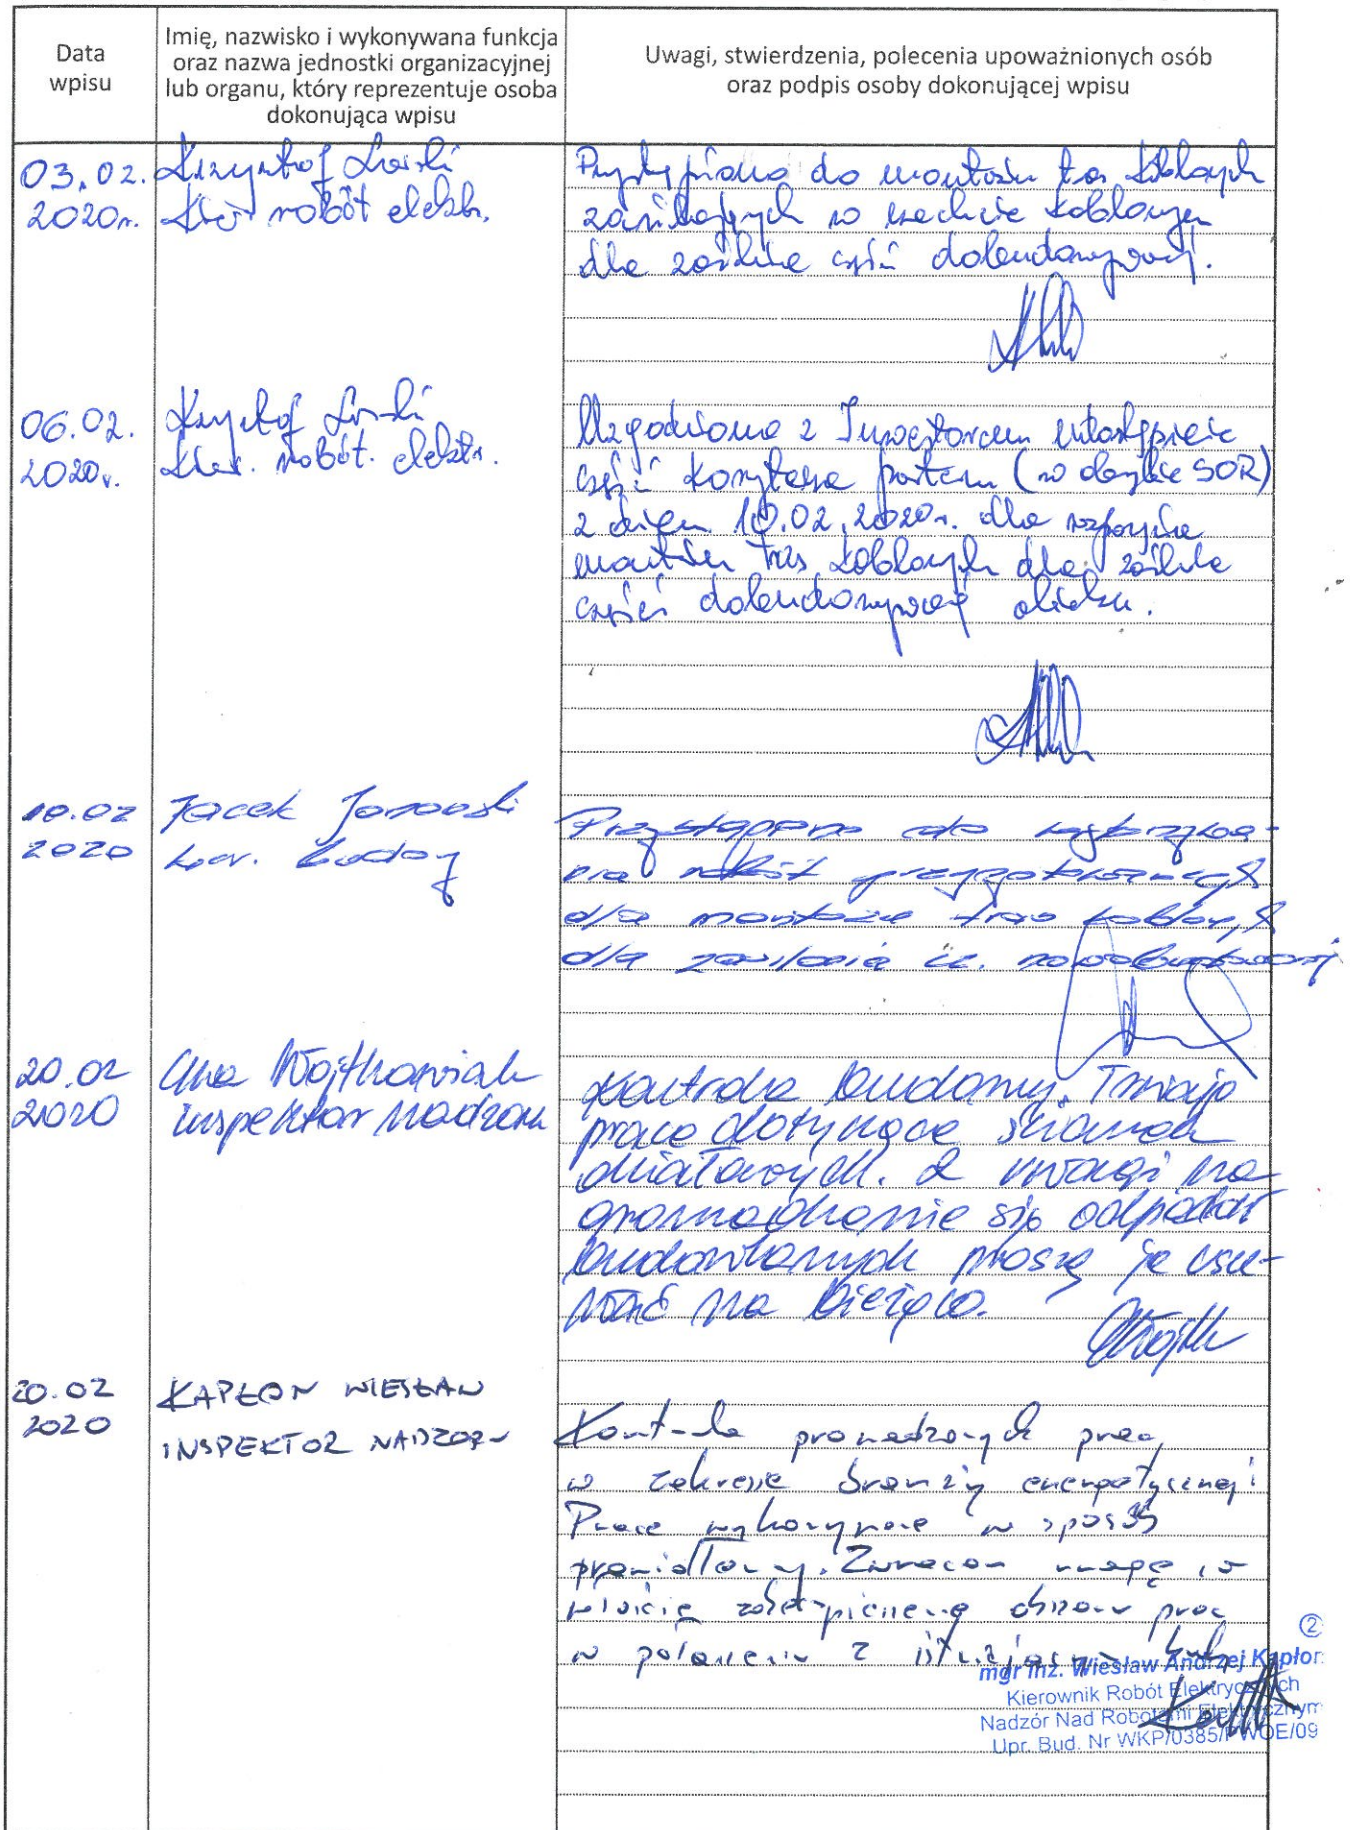 Data
wpisu
Imię, nazwisko i wykonywana funkcja
oraz nazwa jednostki organizacyjnej
lub organu, który reprezentuje osoba
dokonująca wpisu
Uwagi, stwierdzenia, polecenia upoważnionych osób
oraz podpis osoby dokonującej wpisu
03.02.
2020r.
Krzysztof
Kier. robót elektr.
Przystąpiono do montażu tras kablowych
w szachcie kablowym
dla części dobudowywanej.
06.02.
2020r.
Krzysztof
Kier. robót. elektr.
Uzgodniono z Inwestorem
część korytarza parteru (w obrębie SOR)
z dniem 10.02.2020r. dla
montażu tras kablowych dla
części dobudowywanej obiektu.
10.02
2020
Jacek
kier. budowy
Przystąpiono do
robót przygotowawczych
dla montażu tras kablowych
dla zasilania cz. nowobudowanej
20.02
2020
Wojtkowiak
inspektor nadzoru
Kontrola budowy. Trwają
prace dotyczące ścianek
działowych. Z uwagi na
gromadzenie się odpadów
budowlanych proszę je usu-
wać na bieżąco.
20.02
2020
KAPŁON WIESŁAW
INSPEKTOR NADZORU
Kontrola prowadzonych prac
w zakresie branży energetycznej.
Prace wykonywane w sposób
prawidłowy. Zwracam uwagę
prac
z
②
mgr inż. Wiesław Andrzej Kapłon
Kierownik Robót Elektrycznych
Nadzór Nad Robotami Elektrycznym
Upr. Bud. Nr WKP/0385/PWOE/09